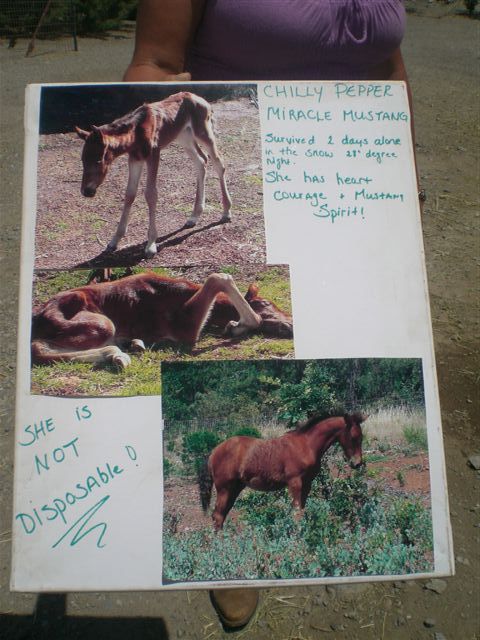 CHILLY PEPPER
MIRACLE MUSTANG
Survived 2 days alone
in the snow 28° degree
night.
She has heart
courage + Mustang
Spirit!
SHE is
NOT
Disposable!